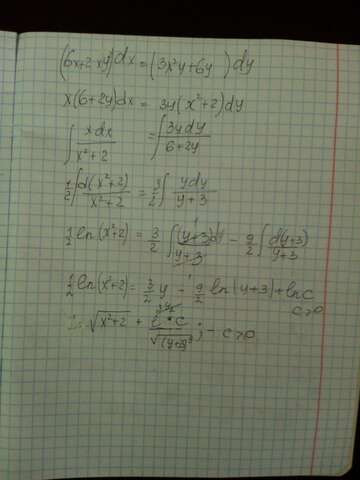 (6x+2xy)dx=(3x²y+6y)dy
x(6+2y)dx = 3y(x²+2)dy
∫ xdx/(x²+2) = ∫ 3ydy/(6+2y)
1/2 ∫ d(x²+2)/(x²+2) = 3/2 ∫ ydy/(y+3)
1/2 ln(x²+2) = 3/2 ∫ (y+3)dy/(y+3) - 9/2 ∫ d(y+3)/(y+3)
1/2 ln(x²+2) = 3/2 y - 9/2 ln|y+3| + ln C
C>0
√(x²+2)
; - C>0